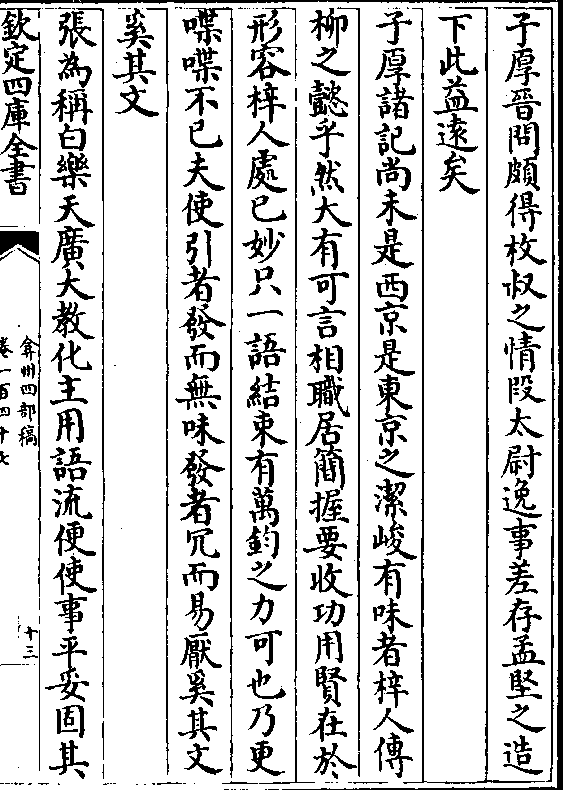 子厚晉問頗得枚叔之情叚太尉逸事差存孟堅之造
下此益遠矣
子厚諸記尚未是西京是東京之潔峻有味者梓人傳
柳之懿乎然大有可言相職居簡握要收功用賢在於
形容梓人處已妙只一語結束有萬鈞之力可也乃更
喋喋不已夫使引者發而無味發者冗而易厭奚其文
奚其文
張為稱白樂天廣大教化主用語流便使事平妥固其
欽定四庫全書
弇州四部稿
卷一百四十七
十三